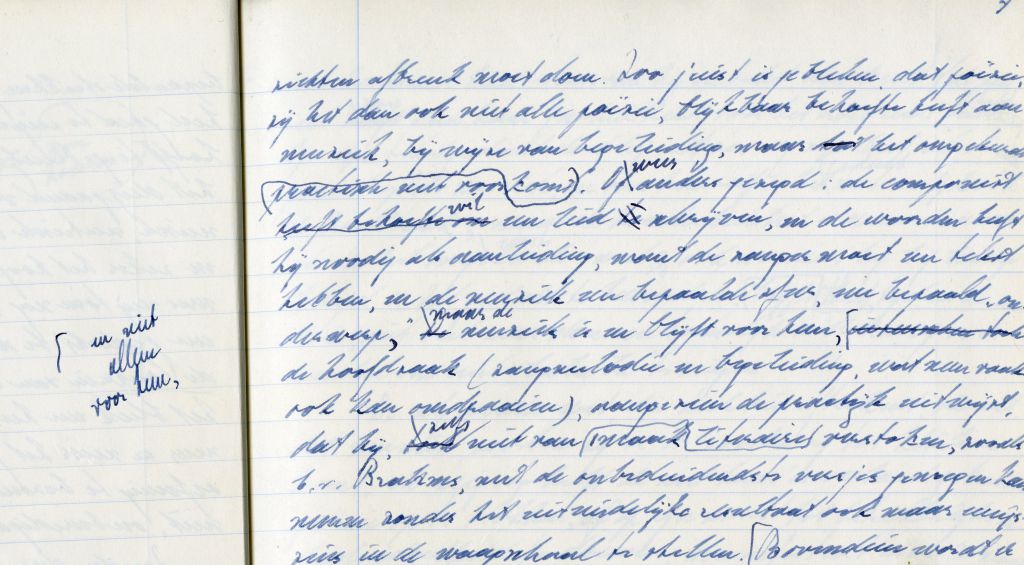 richten afbreuk moet doen. Zoo juist is gebleken dat poëzie,
zij het dan ook niet alle poëzie, blijkbaar behoefte heeft aan
muziek, bij wijze van begeleiding, maar dat het omgekeerde
practisch niet voorkomt. Of anders gezegd: de componist
wees
heeft behoefte om een lied te schrijven, en de woorden heeft
wil
hij noodig als aanleiding, want de zanger moet een tekst
hebben, en de muziek een bepaalde sfeer, een bepaald on-
derwerp, muziek is en blijft voor hem,
maar de
en niet
allen
voor hem,
de hoofdzaak (zangmelodie en begeleiding, wat men vaak
ook kan omdraaien), aangezien de practijk uitwijst,
dat hij, niet van smaak literairen verstoken, zooals
zelfs
b.v. Brahms, met de onbeduidendste versjes genoegen kan
nemen zonder het uiteindelijke resultaat ook maar enigs-
zins in de waagschaal te stellen. Bovendien wordt